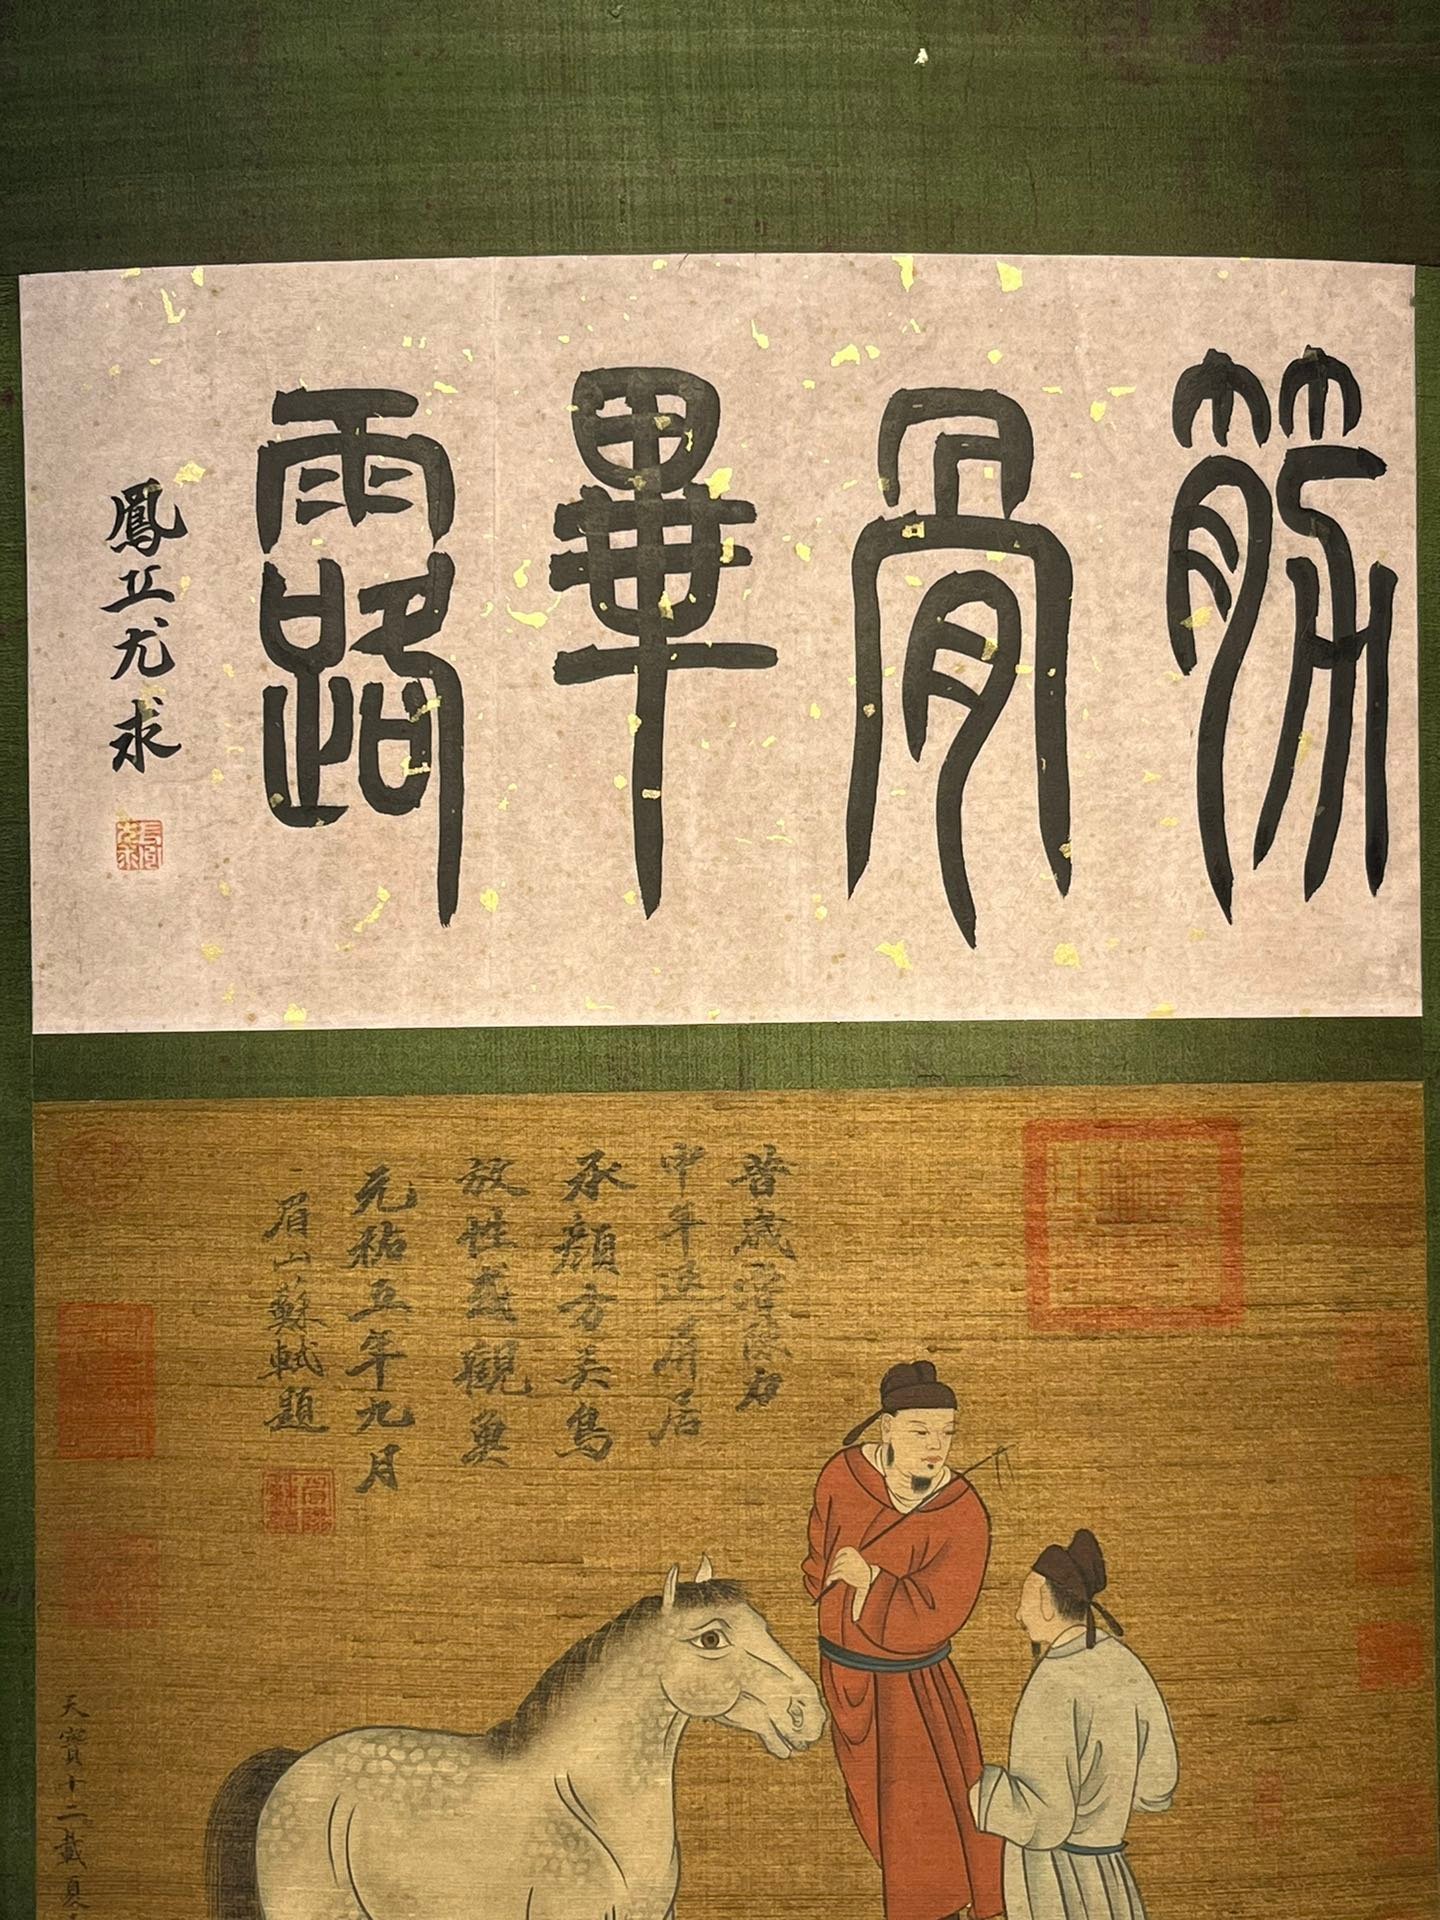 筋骨畢露
鳳丘尤求
昔歲嘗陳力
中年退屏居
承顏方弄鳥
放性或觀魚
元祐五年九月
眉山蘇軾題
天寶十二載夏